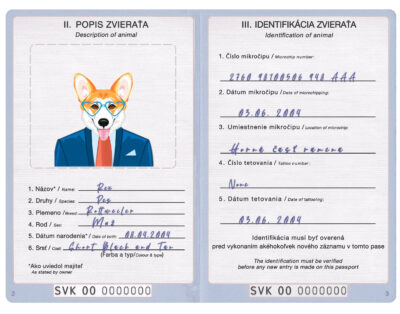 II. POPIS ZVIERAŤA
Description of animal
1. Názov* / Name: Rex
2. Druhy / Species Pes
3. Plemeno / Breed Rottweiler
4. Rod / Sex: Muž
5. Dátum narodenia* / Date of birth: 08.04.2004
6. Srsť / Coat Short Black and Tan
(Farba a typ/Colour & type)
*Ako uviedol majiteľ
As stated by owner
SVK 00 0000000
2
III. IDENTIFIKÁCIA ZVIERAŤA
Identification of animal
1. Číslo mikročipu / Microchip number:
941 AAA
2. Dátum mikročipu / Date of microchipping:
03.06. 2004
3. Umiestenie mikročipu / Location of microchip:
Horná časť ramena
4. Číslo tetovania / Tattoo number:
None
5. Dátum tetovania / Date of tattooing:
03.06. 2004
Identifikácia musí byť overená
pred vykonaním akéhokoľvek nového záznamu v tomto pase
The identification must be verified
before any new entry is made on this passport
SVK 00 0000000
3